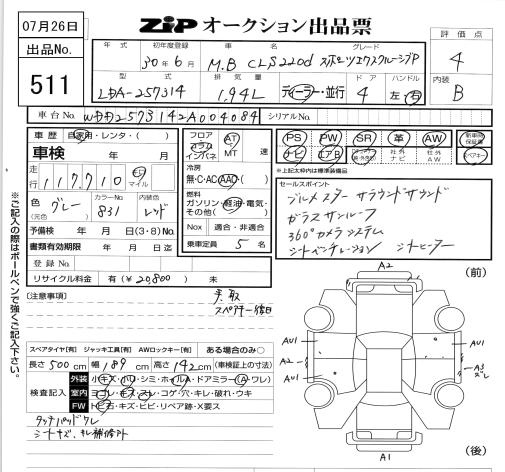 07月26日
出品No.
511
ZiP オークション出品票
評価点
4
内装
B
年式 初年度登録 車名 グレード
30年6月 M.B CLS220d スポーツエクスクルーシブP
型式 排気量 ドア ハンドル
LDA-257314 1.94L ディーラー・並行 4 左・右
車台No. WDD2573142A004084 シリアルNo.
車歴 自家用・レンタ・( )
車検 年 月
走行 117,710 km マイル
色 (元色) グレー カラーNo. 831 内装色 レッド
予備検 年 月 日(3・8)No.
書類有効期限 年 月 日迄
登録No.
リサイクル料金 有(¥20,800) 未
フロア コラム インパネ AT MT 速
冷房 無・C・AC・AAC・( )
燃料 ガソリン・軽油・電気・その他( )
Nox 適合・非適合
乗車定員 5 名
PS PW SR 革 AW 新車時保証書
ナビ エアB 社外ナビ 社外AW スペアキー
※上記太枠内は標準装備品
セールスポイント
ブルメスター サラウンドサウンド
ガラスサンルーフ
360°カメラシステム
シートベンチレーション シートヒーター
※ご記入の際はボールペンで強くご記入下さい。
[注意事項]
手, 取
スペアキー 後日
スペアタイヤ[有] ジャッキ工具[有] AWロックキー[有] ある場合のみ○
長さ 500cm 幅 189cm 高さ 142cm (車検証上の寸法)
検査記入
外装 小キズ・小凹・シミ・ホイルA・ドアミラー(A・ワレ)
室内 ヨゴレ・キズ・スレ・コゲ・穴・キレ・破れ・ウキ
FW トビ石・キズ・ヒビ・リペア跡・X要ス
タッチパッドクレ
シートキズ、キレ補修跡
(前)
A2
AU1
A2
AU1
AU1
A3
ズレ
A1
(後)